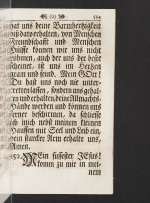 hat uns deine Barmhertzigkeit
biß dato erhalten, von Menschen
Freundschafft und Menschen
Hülff können wir uns nicht
rühmen, auch der uns der beste
scheinet, ist uns im Hertzen
gram und feind. Mein GOtt!
Du hast uns noch nie unter-
tretten lassen, sondern uns gehal-
ten und erhalten, deine Allmachts-
Hände werden und können uns
ferner beschirmen, da schliesse
mich nebst meinem kleinen
Hauffen mit Seel und Leib ein,
dein starcker Arm erhalte uns,
Amen.
352. Mein süssester JEsus!
komm zu mir in mei-
nem